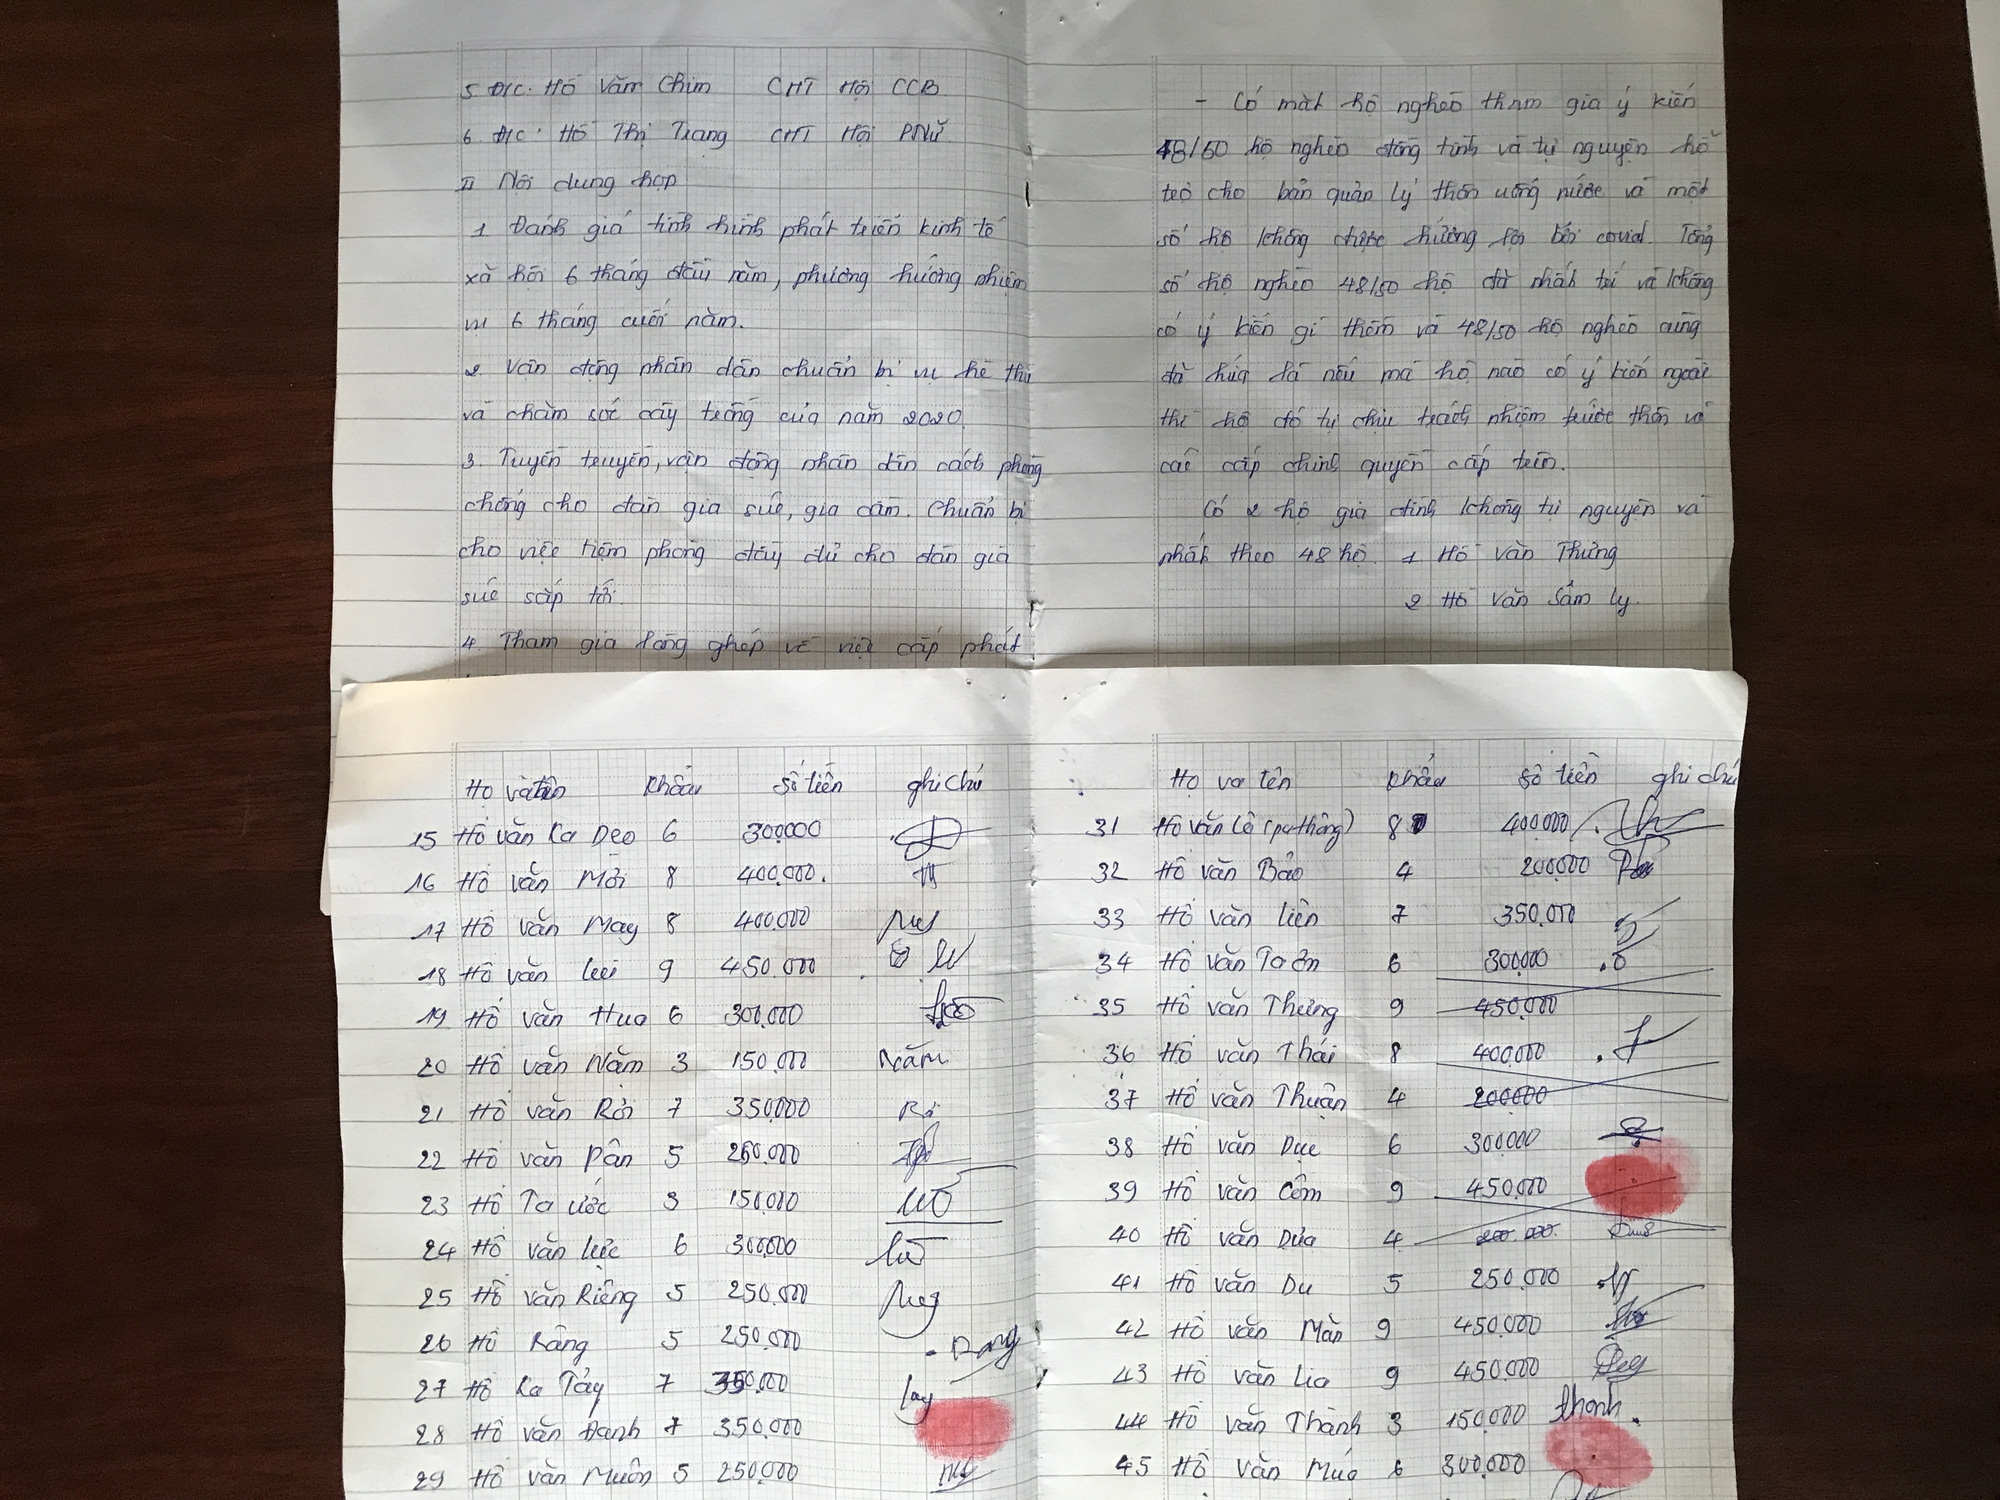 5 Đ/C: Hồ Văn Chim CHT Hội CCB
6. Đ/C: Hồ Thị Trang CHT Hội PNữ
II Nội dung họp
1 Đánh giá tình hình phát triển kinh tế
xã hội 6 tháng đầu năm, phương hướng nhiệm
vụ 6 tháng cuối năm.
2. Vận động nhân dân chuẩn bị vụ hè thu
và chăm sóc cây trồng của năm 2020.
3. Tuyên truyền, vận động nhân dân cách phòng
chống cho đàn gia súc, gia cầm. Chuẩn bị
cho việc tiêm phòng đầy đủ cho đàn gia
súc sắp tới.
4. Tham gia lồng ghép về việc cấp phát
- Có mặt hộ nghèo tham gia ý kiến
48/50 hộ nghèo đồng tình và tự nguyện hỗ
trợ cho ban quản lý thôn uống nước và một
số hộ không được hưởng lợi bởi covid. Tổng
số hộ nghèo 48/50 hộ đã nhất trí và không
có ý kiến gì thêm và 48/50 hộ nghèo cũng
đã hứa là nếu mà hộ nào có ý kiến ngoài
thì hộ đó tự chịu trách nhiệm trước thôn và
các cấp chính quyền cấp trên.
Có 2 hộ gia đình không tự nguyện và
nhất theo 48 hộ. 1 Hồ Văn Thưng
2 Hồ Văn Sầm Ly.
Họ và tên Khẩu Số tiền ghi chú
15 Hồ Văn Ka Deo 6 300000
16 Hồ Văn Mới 8 400.000.
17 Hồ Văn May 8 400.000
18 Hồ Văn 9 450.000
19 Hồ Văn Hua 6 300.000
20 Hồ Văn Năm 3 150.000 Năm
21 Hồ Văn Rời 7 350000
22 Hồ Văn Pân 5 250.000
23 Hồ Ta Ước 3 150.000
24 Hồ Văn Lực 6 300000
25 Hồ Văn Riêng 5 250.000
26 Hồ Răng 5 250.000
27 Hồ Ka Tảy 7 350.000 Lay
28 Hồ Văn Đanh 7 350.000
29 Hồ Văn Muôn 5 250.000
Họ và tên Khẩu Số tiền ghi chú
31 Hồ Văn Lô (pa thông) 8 400.000
32 Hồ Văn Bảo 4 200.000
33 Hồ Văn Liên 7 350.000
34 Hồ Văn Ta Ơn 6 300000
35 Hồ Văn Thưng 9 450.000
36 Hồ Văn Thái 8 400.000
37 Hồ Văn Thuận 4 200000
38 Hồ Văn Dục 6 300000
39 Hồ Văn Côm 9 450.000
40 Hồ Văn Dửa 4 200.000.
41 Hồ Văn Du 5 250.000
42 Hồ Văn Măn 9 450.000
43 Hồ Văn Lia 9 450.000
44 Hồ Văn Thành 3 150.000 Thanh.
45 Hồ Văn 6 300.000